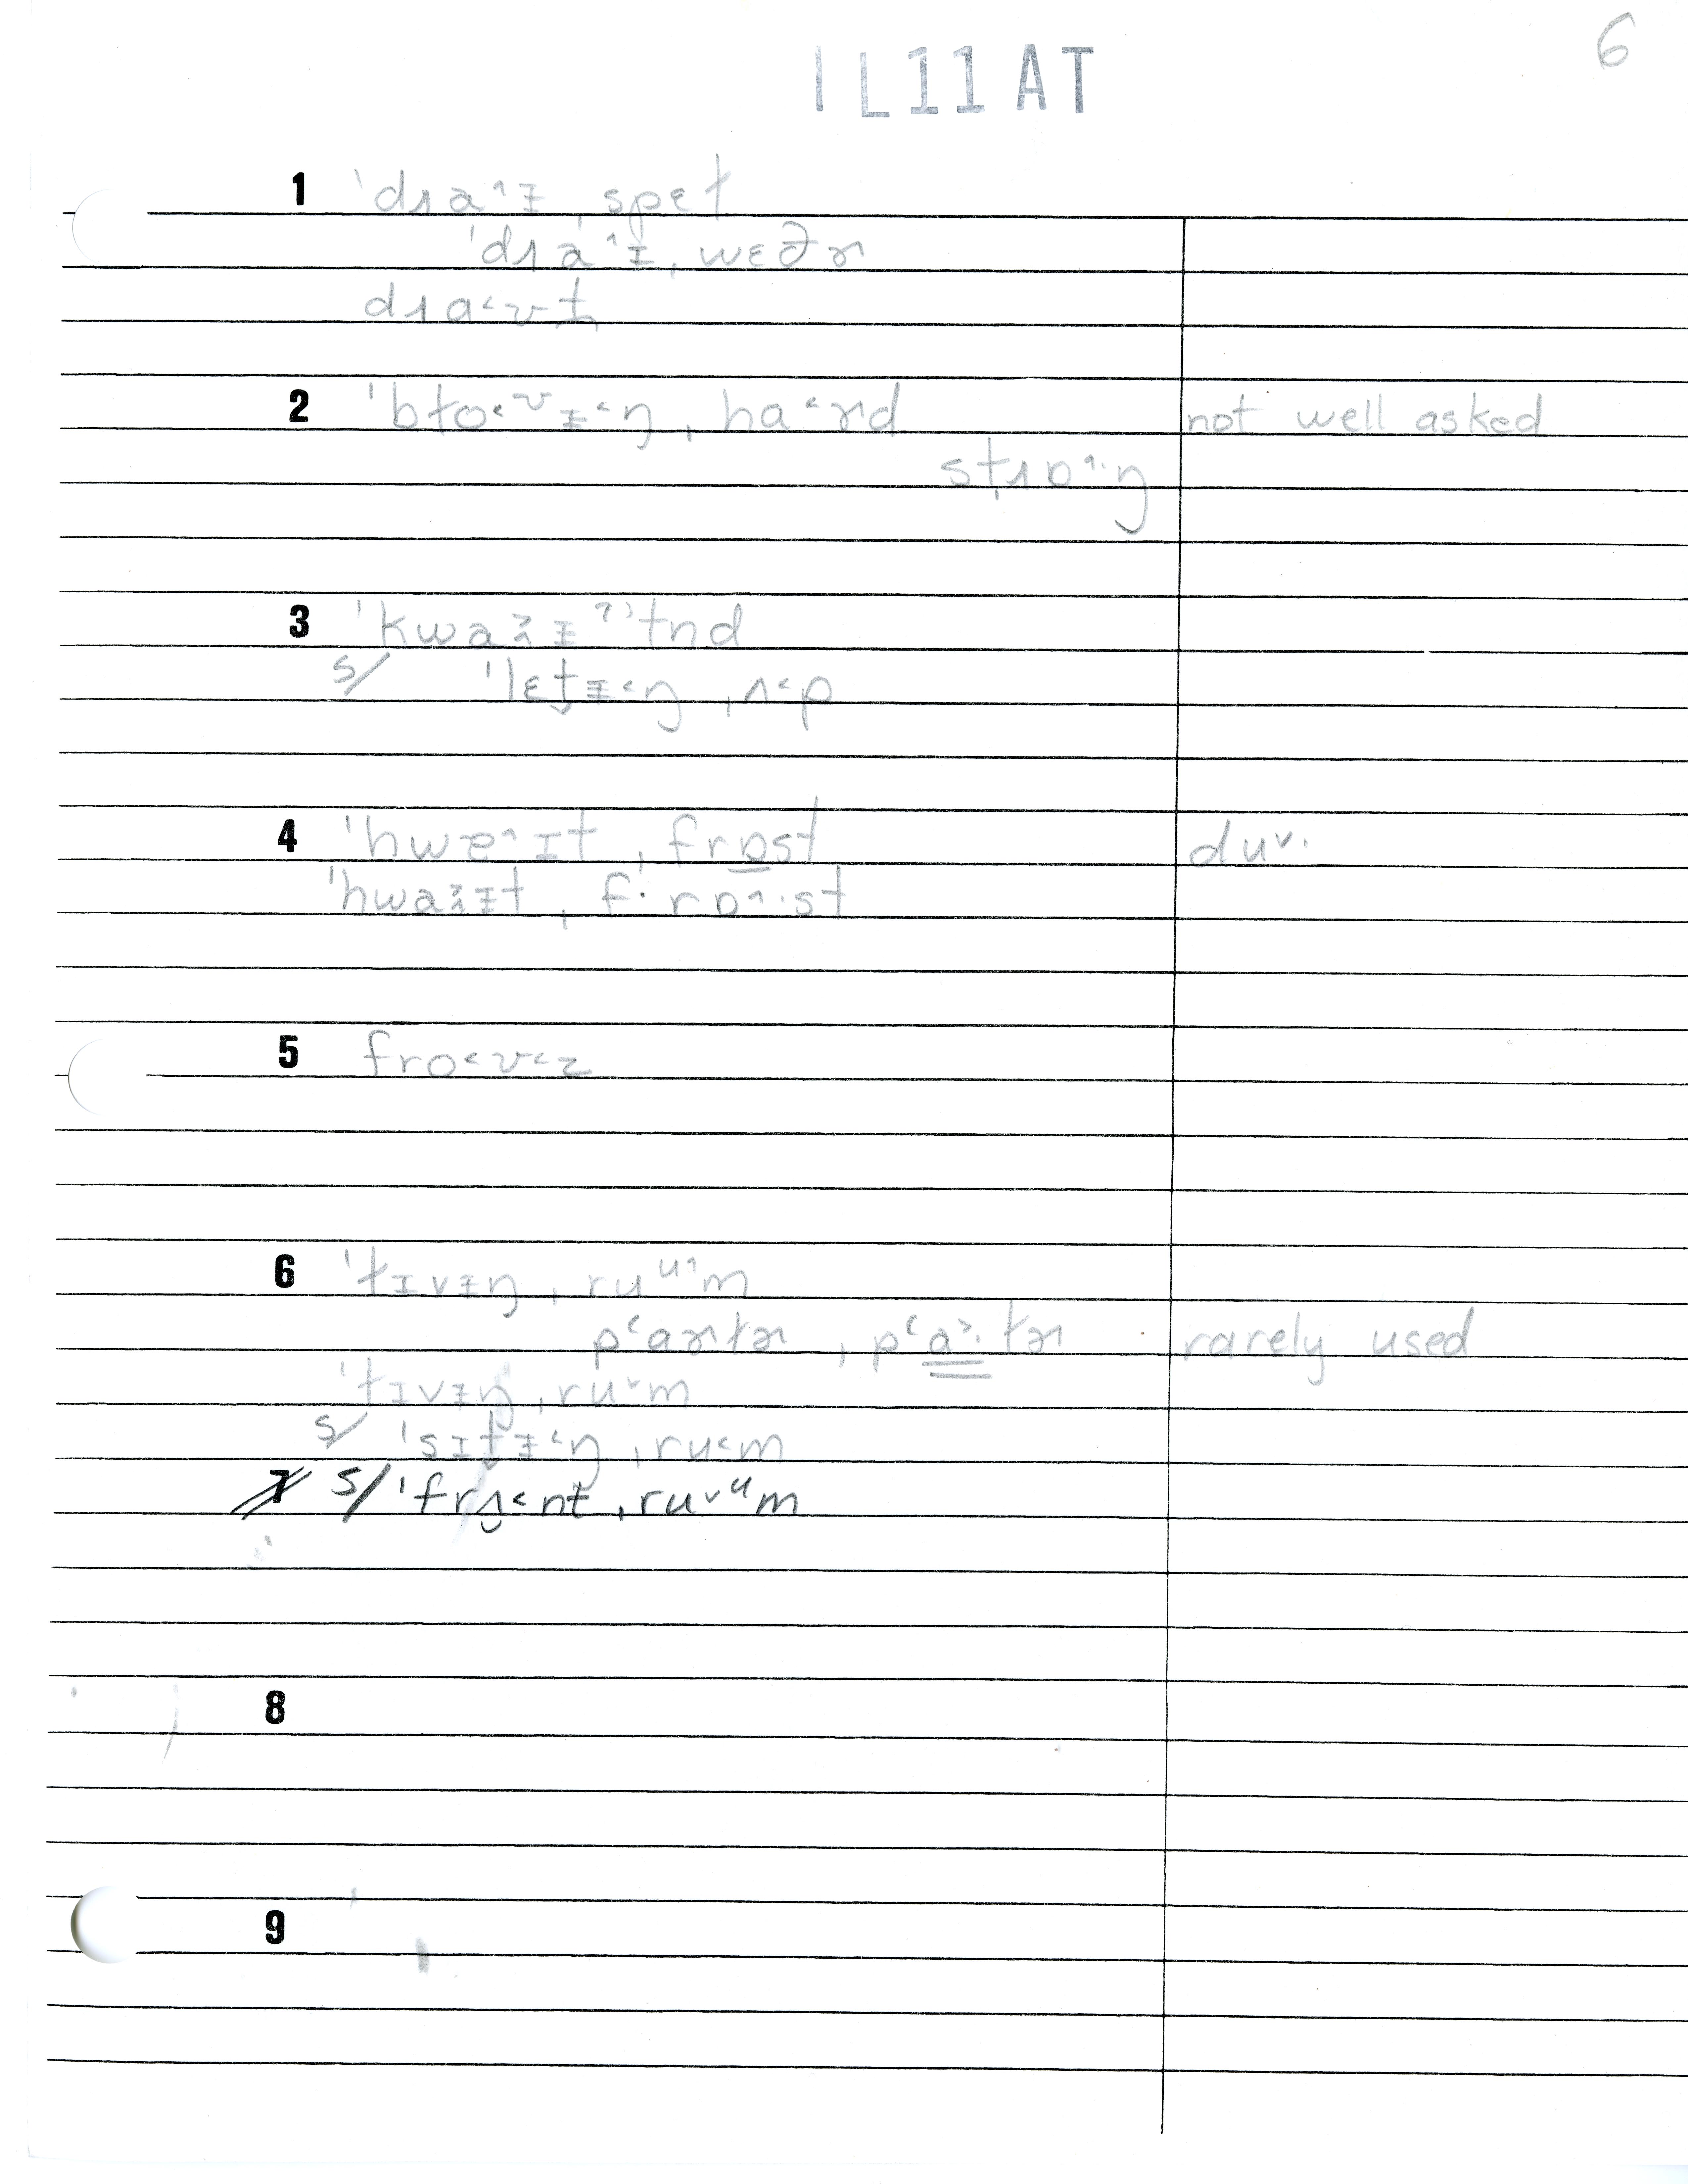 6
IL11AT
1 ˈdɹa˄ɪ ˌspɛt
ˈdɹa˄ɪ ˌwɛðɚ
dɹa˂ʊt
2 ˈbɫo˂ᵛɪ˂ŋ ˌha˂ɚd not well asked
stɹɒ˄·ŋ
3
s/ ˈlɛt̬ɪ˂ŋ ˌʌ˂p
4 ˈhwɐ˄ɪt ˌfrɒst du˅.
ˈhwaɪt ˌf·rɒ˄·st
5 fro˂ʊ˂z
6 ˈɫɪvɪŋ ˌruᵘ˄m
pʻaɚɫɚ , pʻa˃·ɫɚ rarely used
ˈɫɪvɪŋ ˌru˅m
s/ ˈsɪt̬ɪ˂ŋ ˌru˂m
7 s/ ˈfrʌ̯˂nt ˌru˅ᵘm
8
9